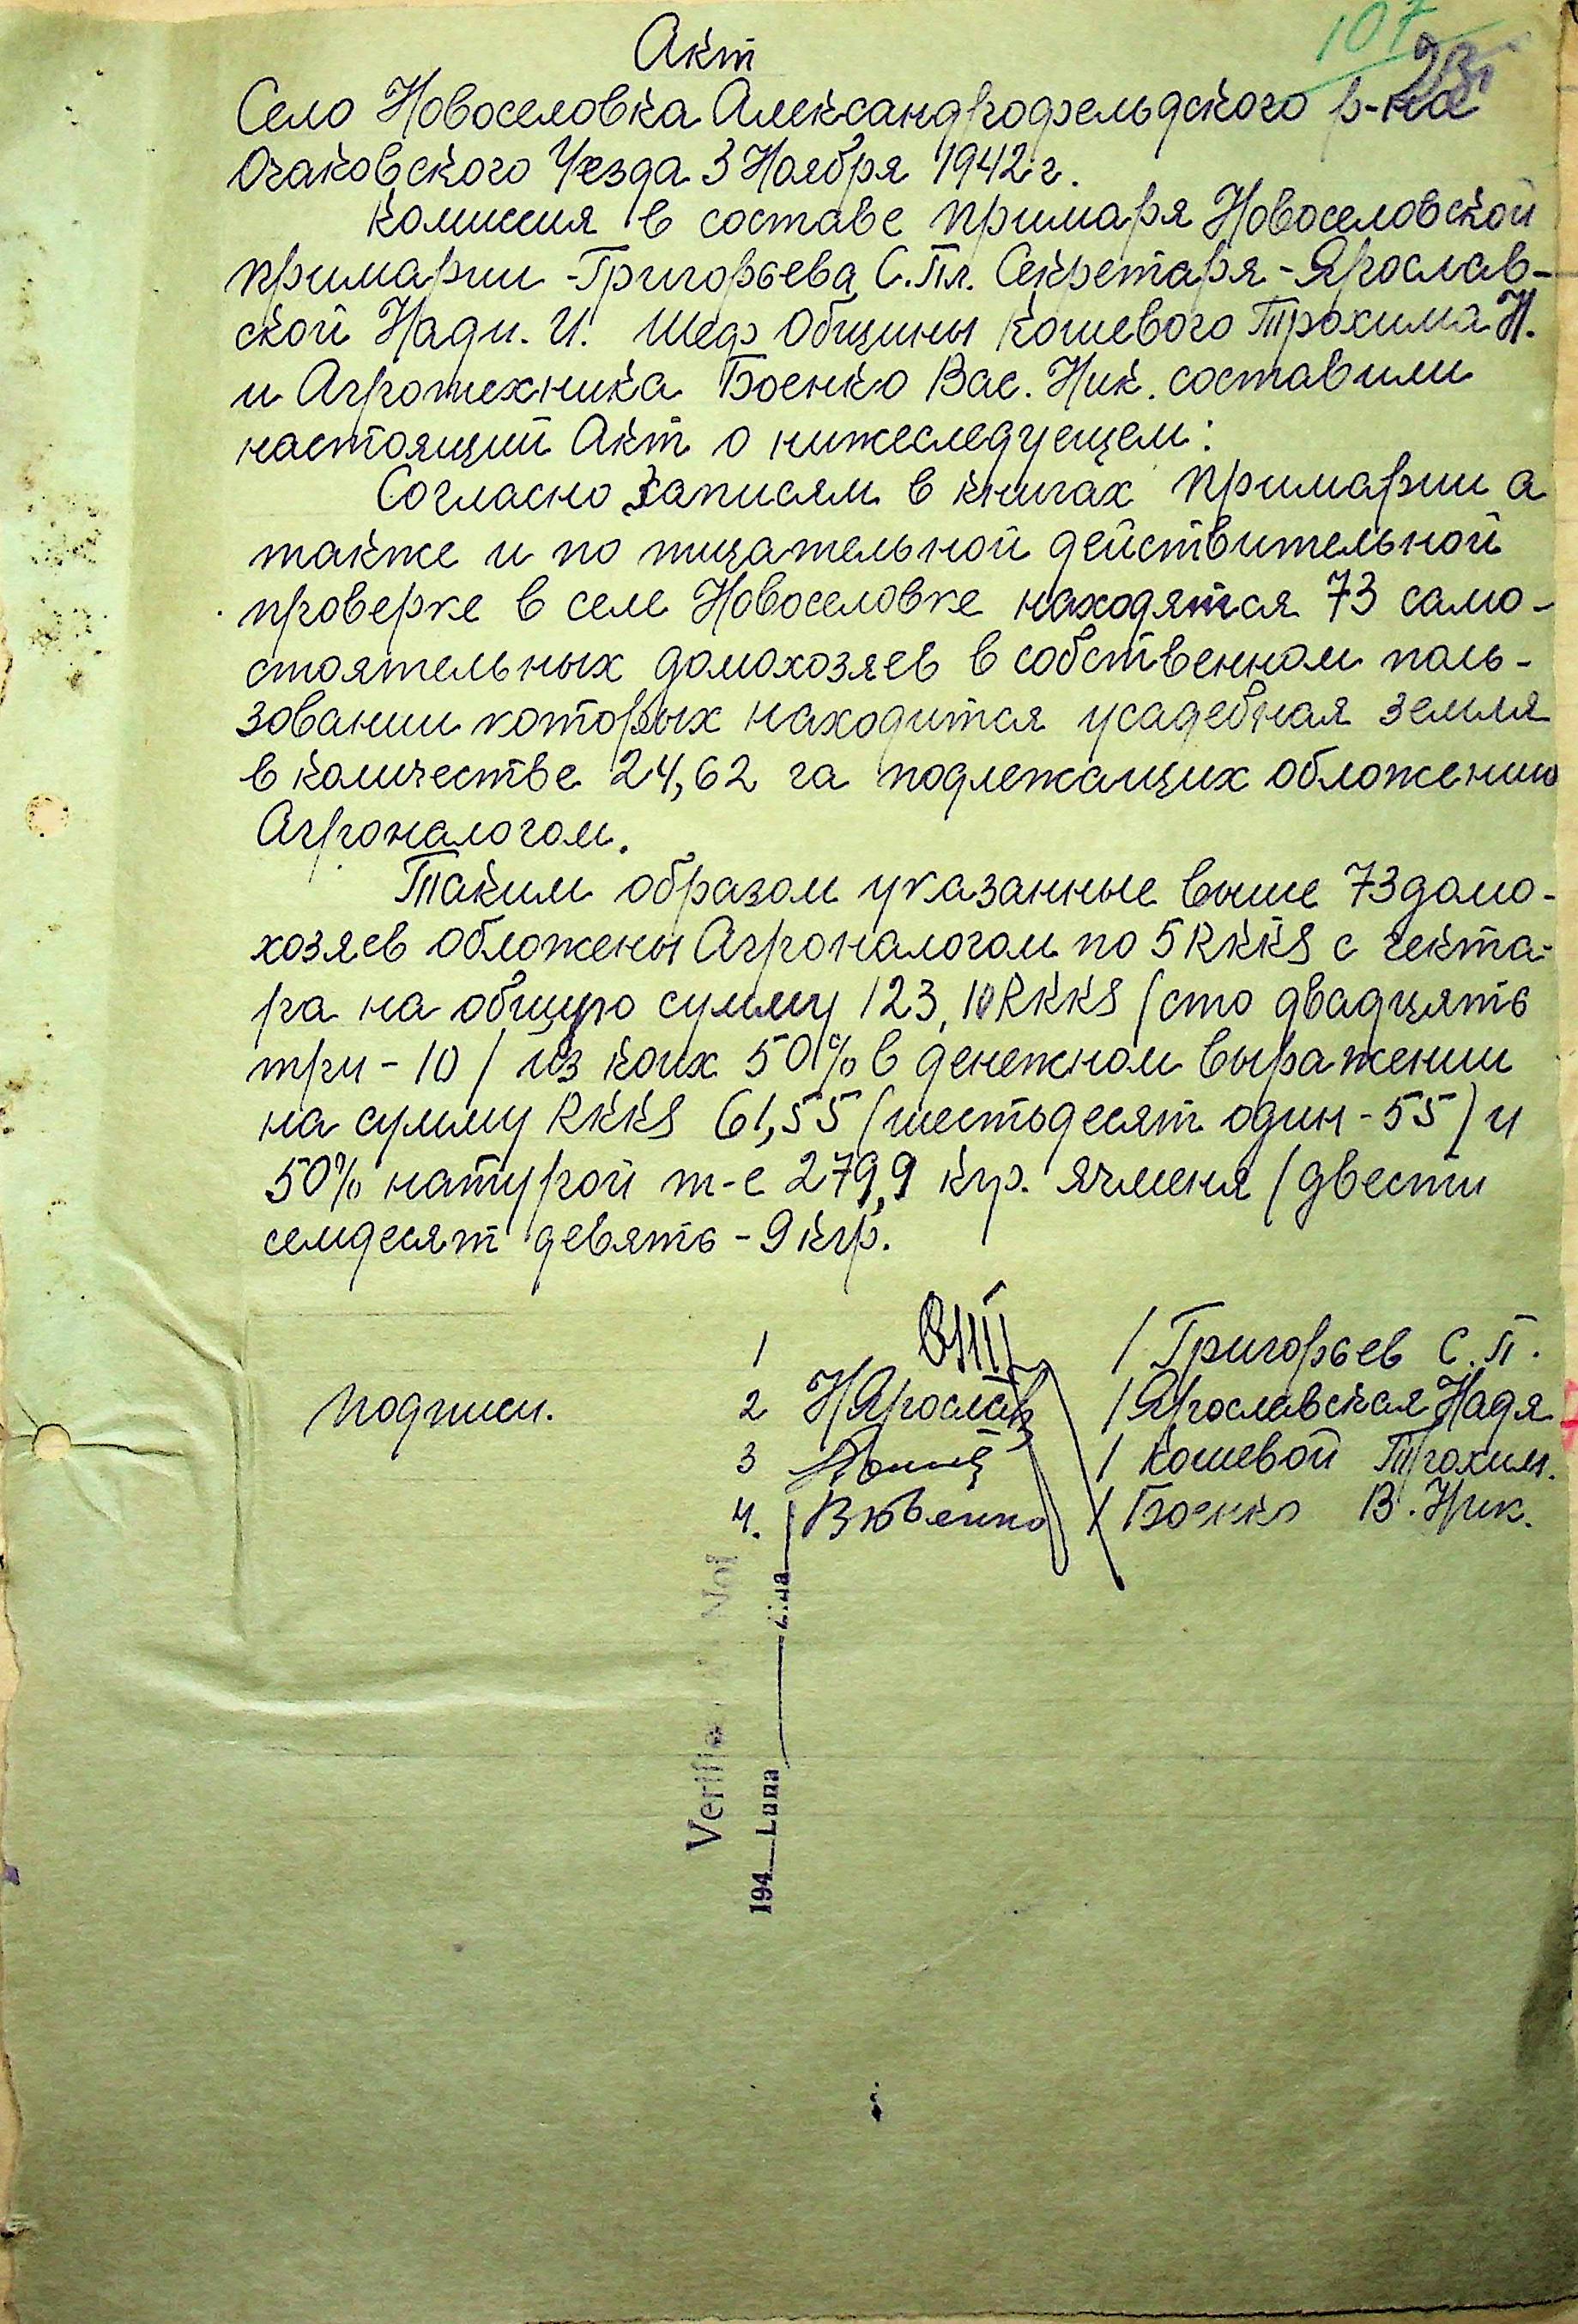 107
Акт
Село Новоселовка Александрофельдского р-на
Очаковского Уезда 3 Ноября 1942 г.
Комиссия в составе Примаря Новоселовской
примарии - Григорьева С. Пл. Секретаря - Ярослав-
ской Нади. И. Шеф Общины Кошевого Трохима Н.
и Агротехника Боенко Вас. Ник. составили
настоящий Акт о нижеследуещем:
Согласно записям в книгах Примарии а
также и по тщательной действительной
проверке в селе Новоселовке находятся 73 само-
стоятельных домохозяев в собственном поль-
зовании которых находится усадебная земля
в количестве 24,62 га подлежащих обложению
Агроналогом.
Таким образом указанные выше 73 домо-
хозяев обложены Агроналогом по 5 RKKS с гекта-
ра на общую сумму 123,10 RKKS / сто двадцять
три - 10 / из коих 50% в денежном выражении
на сумму RKKS 61,55 / шестьдесят один - 55 / и
50% натурой т-е 279,9 кгр. ячменя / двести
семдесят девять - 9 кгр.
1 / Григорьев С. П.
Подписи. 2 НЯрослав / Ярославская Надя
3 / Кошевой Трохим.
4. / Боенко В. Ник.
194 Luna Ziua